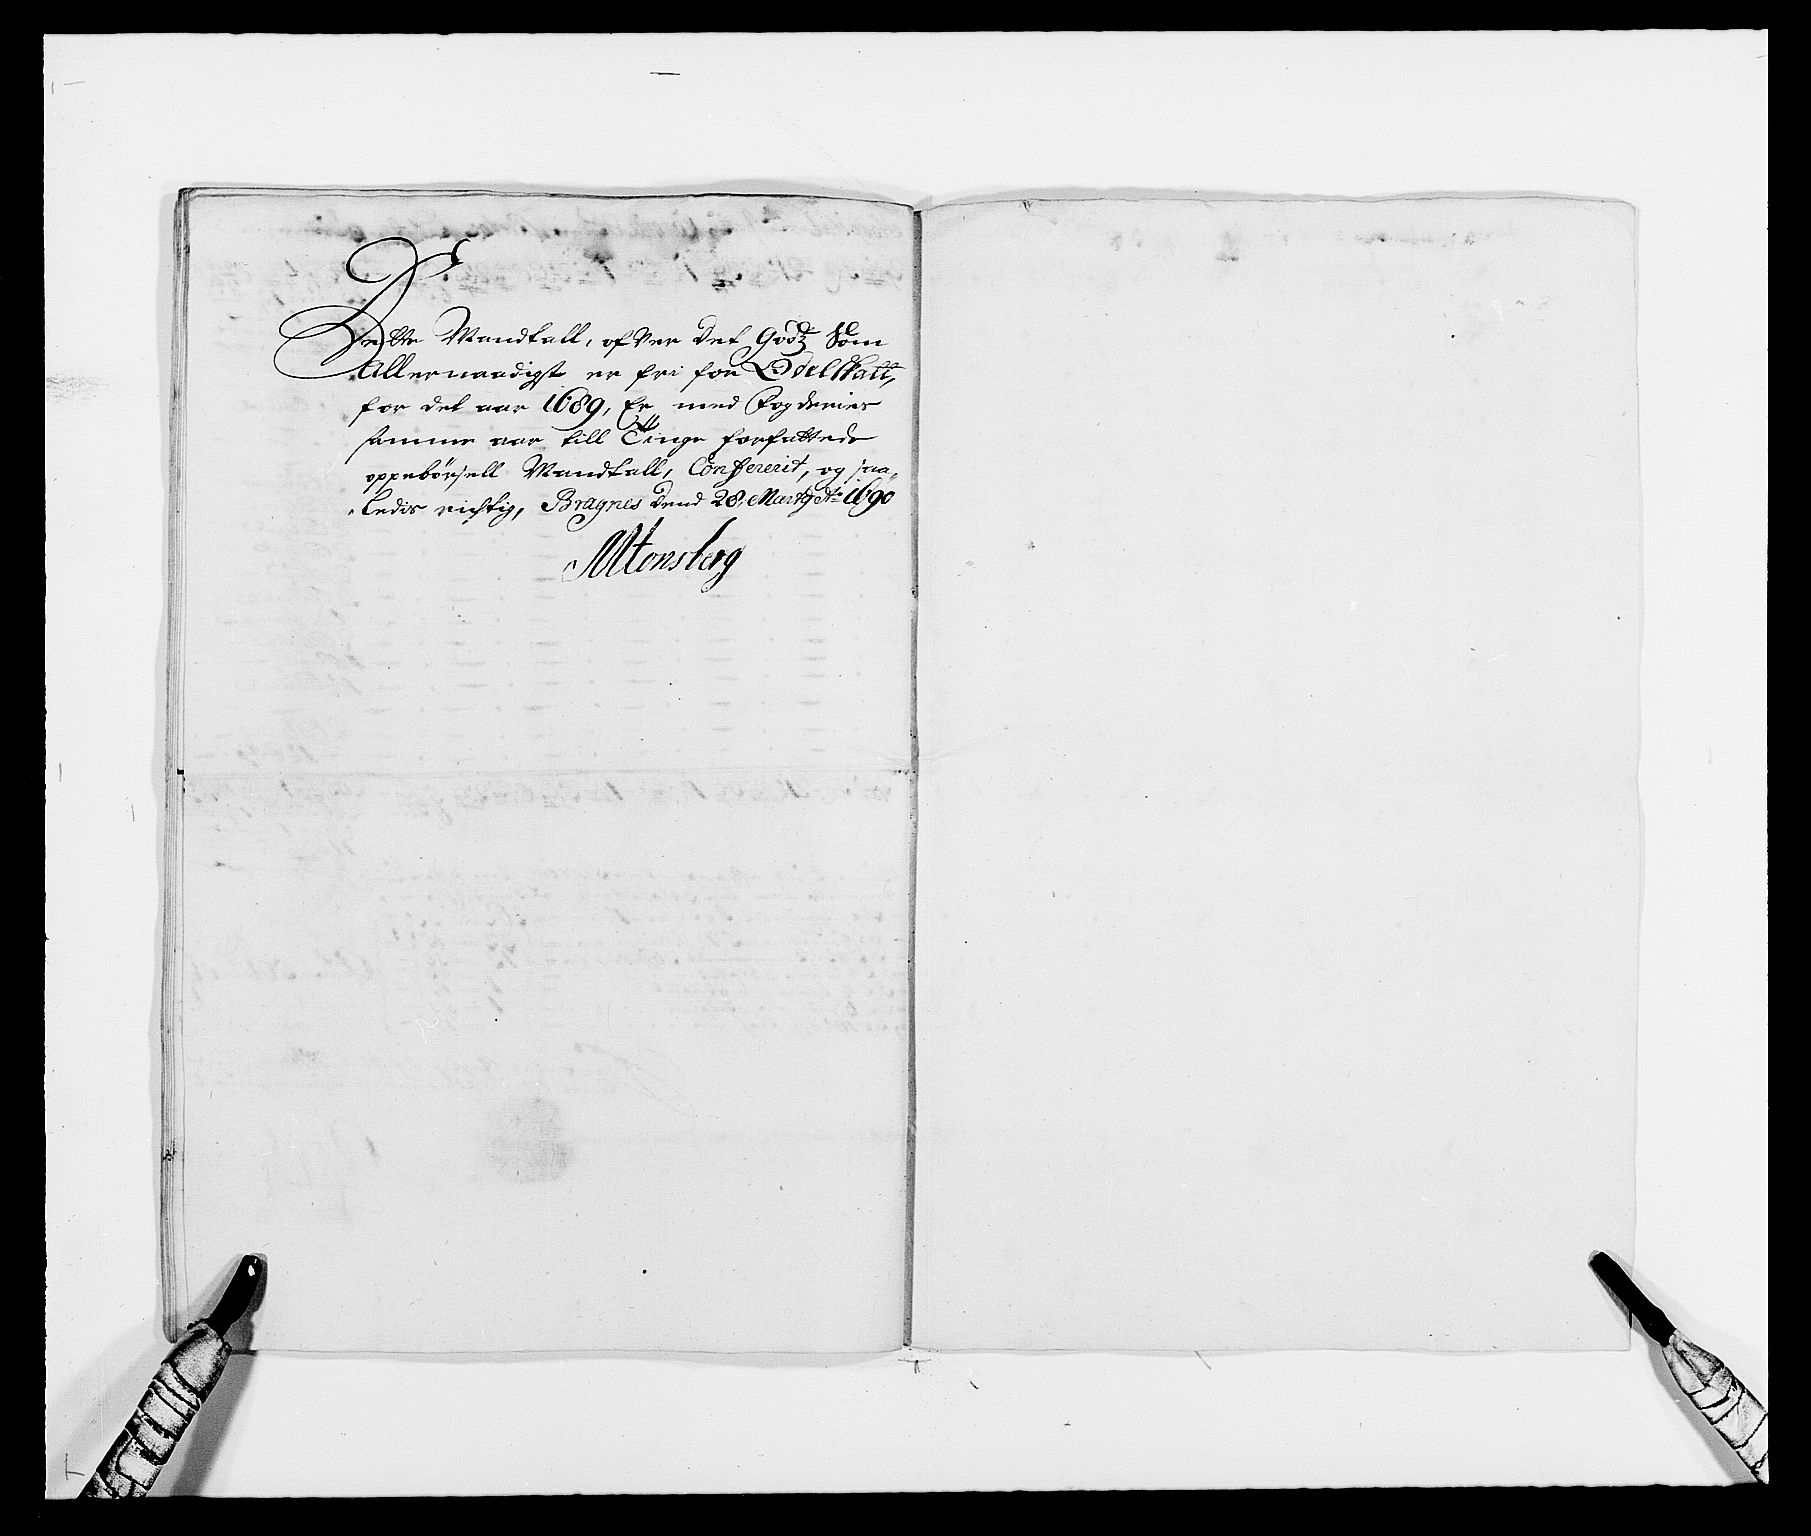 Dette Mandtall, ofver det Godtz Som
Allernaadigst er fri for Odelskatt,
for det aar 1689, Er med Fogderies
samme aar till Tinge forfattede
oppebørsell Mandtall, Confererit, og saa-
ledis richtig, Bragnes dend 28 Marty Ao 1690
Mtonsberg